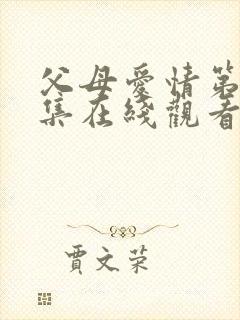 父母愛情第
集在綫觀看
賈文荣